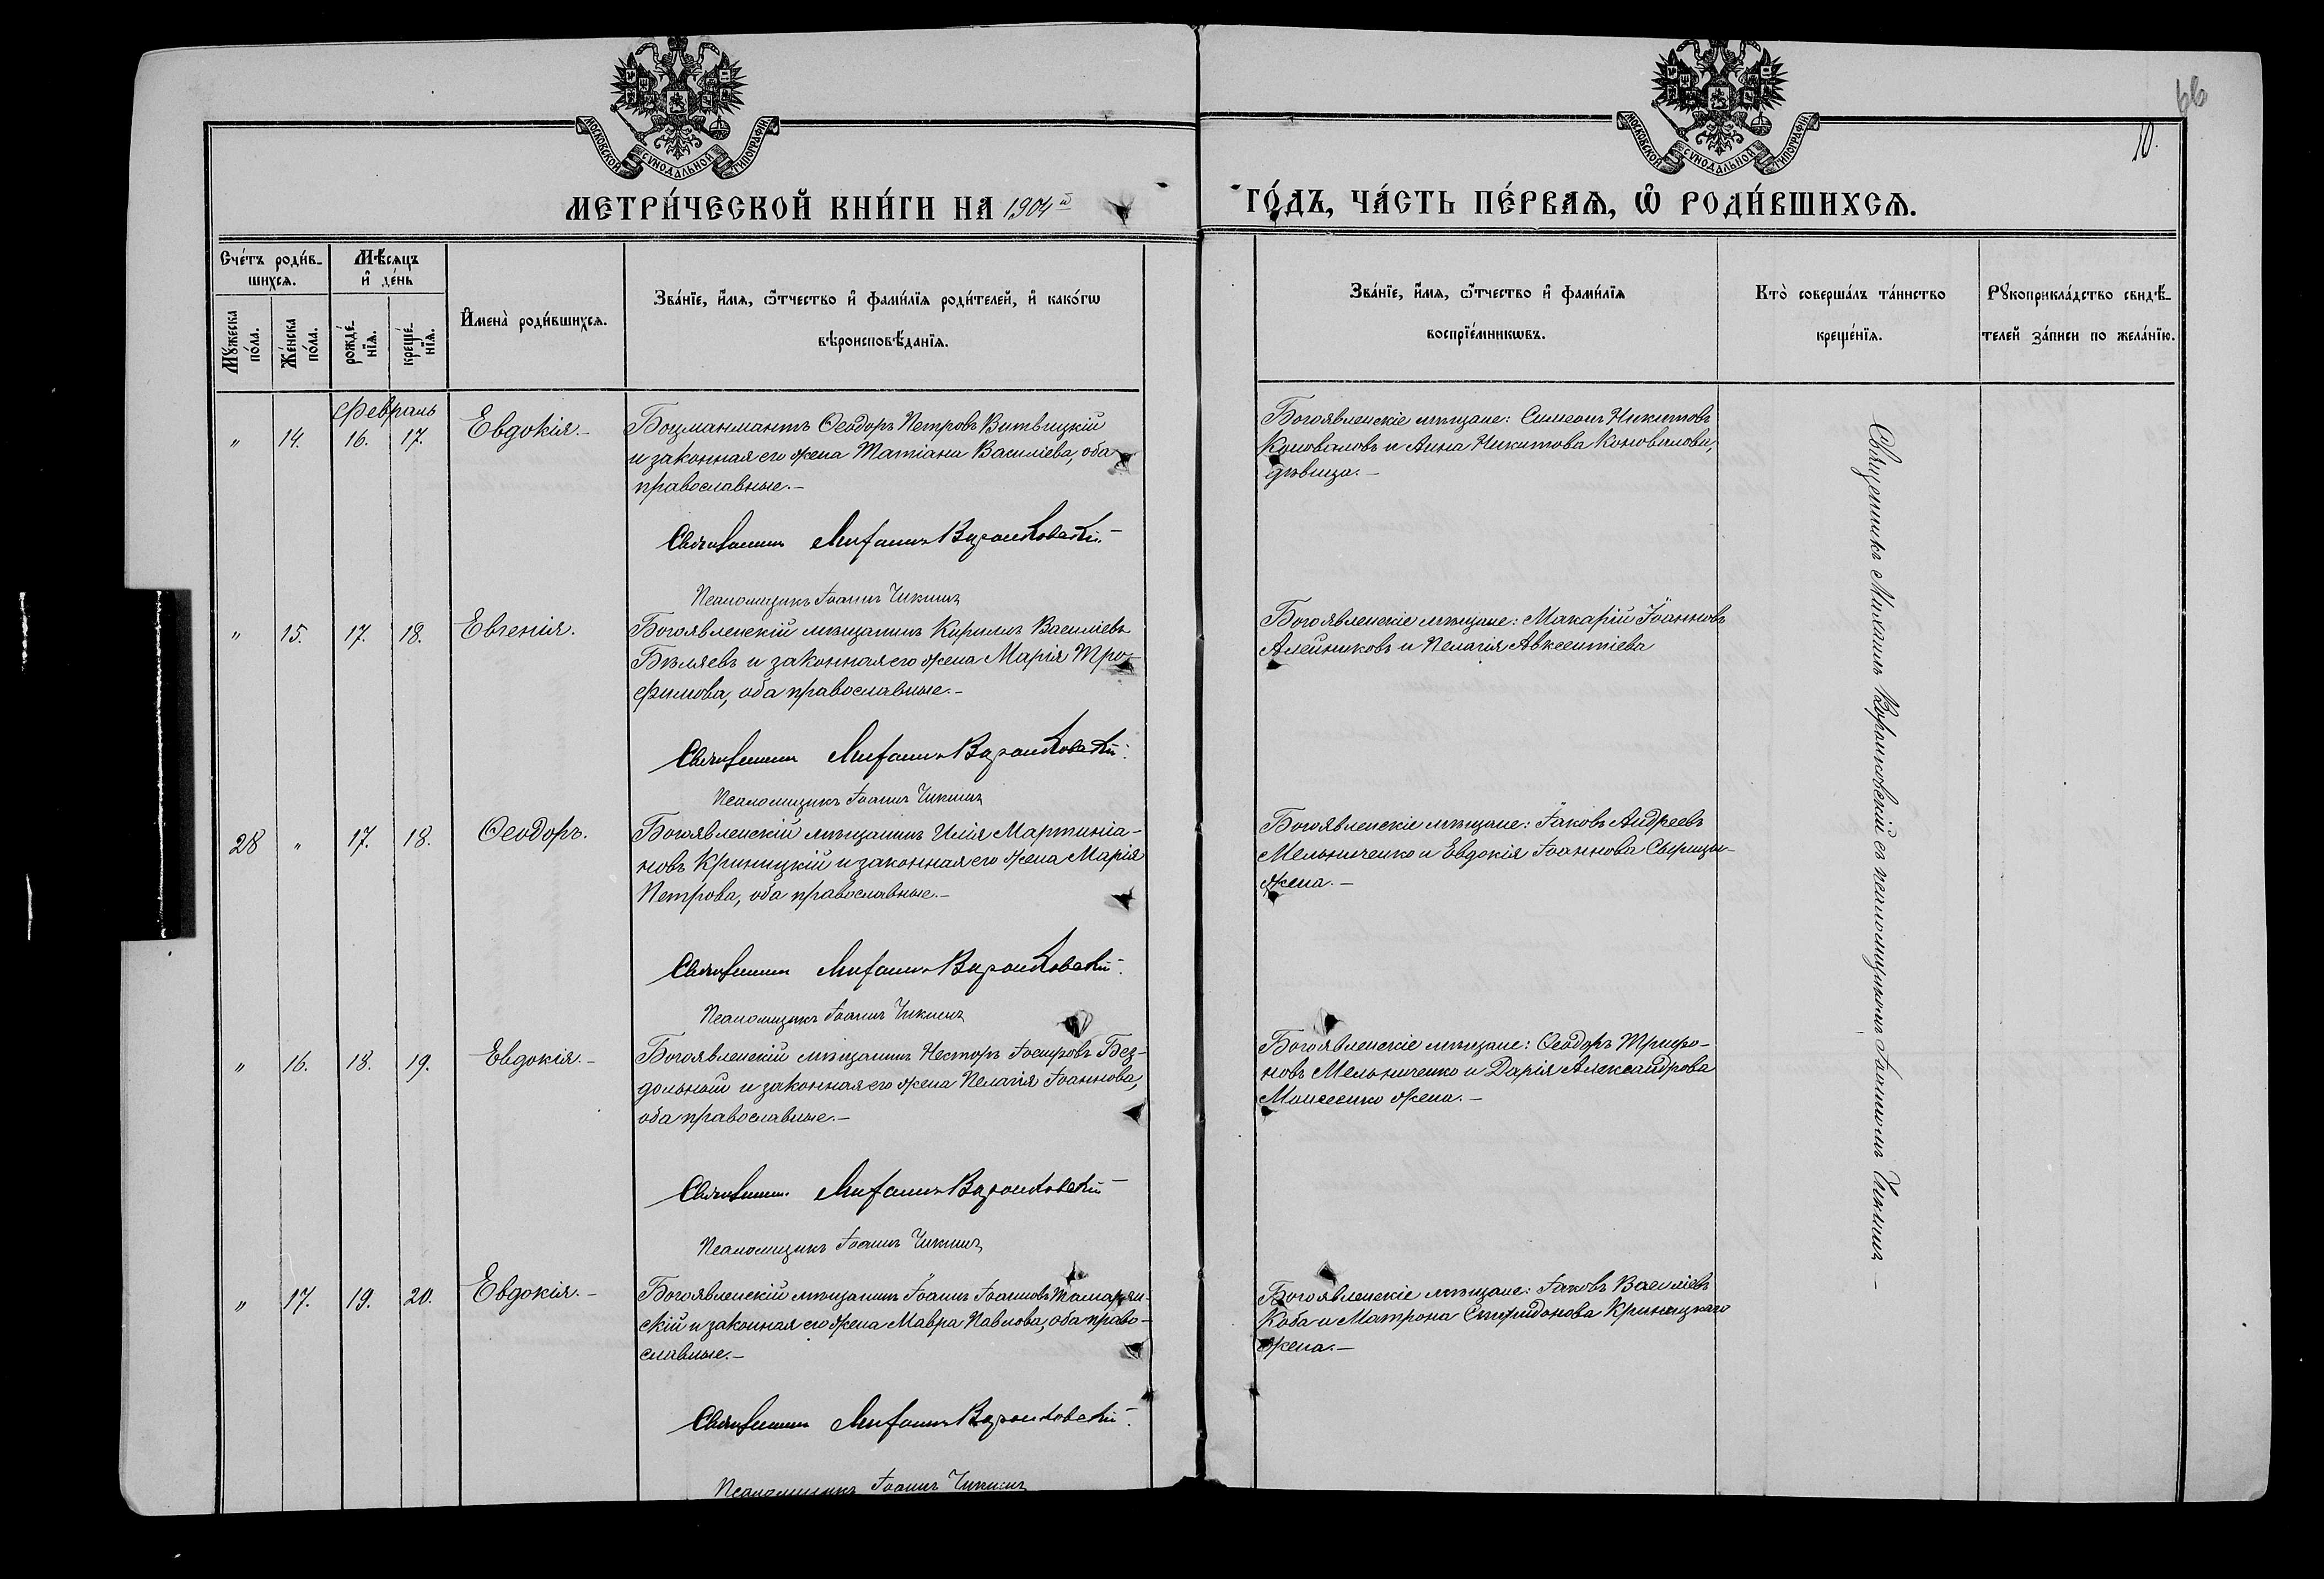 66
10.
МОСКОВСКОЙ СУНОДАЛЬНОЙ ТИПОГРАФІИ
МОСКОВСКОЙ СУНОДАЛЬНОЙ ТИПОГРАФІИ
МЕТРИ́ЧЕСКОЙ КНИ́ГИ НА 1904й
ГО́ДЪ, ЧА́СТЬ ПЕ́РВАѦ, Ѡ РОДИ́ВШИХСѦ.
Сче́тъ роди́в-
шихсѧ.
Мꙋ́жеска по́ла.
Же́нска по́ла.
Мѣ́сѧцъ
и де́нь
рожде́-нїѧ.
креще́-нїѧ.
Имена̀ роди́вшихсѧ.
Зва́нїе, и́мѧ, ѻ́тчество и фами́лїѧ роди́телей, и како́гѡ
вѣроисповѣ́данїѧ.
Зва́нїе, и́мѧ, ѻ́тчество и фами́лїѧ
воспрїе́мникѡвъ.
Кто̀ соверша́лъ та́инство
креще́нїѧ.
Рꙋкоприкла́дство свидѣ́-
телей за́писи по жела́нїю.
Февраль
" 14. 16. 17. Евдокія.-
Боцманматъ Ѳеодоръ Петровъ Витвицкій
и законная его жена Татіана Василіева, оба
православные.-
Священникъ Михаилъ Воронковскій.-
Псаломщикъ Іоаннъ Чикинъ
Богоявленскіе мѣщане: Симеонъ Никитовъ
Коноваловъ и Анна Никитова Коновалова,
дѣвица.-
" 15. 17. 18. Евгенія.
Богоявленскій мѣщанинъ Кириллъ Василіевъ
Бѣляевъ и законная его жена Марія Тро-
фимова, оба православные.-
Священникъ Михаилъ Воронковскій.
Псаломщикъ Іоаннъ Чикинъ
Богоявленскіе мѣщане: Макарій Іоанновъ
Алейниковъ и Пелагія Авксентіева
28 " 17. 18. Ѳеодоръ.
Богоявленскій мѣщанинъ Илія Мартиніа-
новъ Криницкій и законная его жена Марія
Петрова, оба православные.-
Священникъ Михаилъ Воронковскій.
Псаломщикъ Іоаннъ Чикинъ
Богоявленскіе мѣщане: Іаковъ Андреевъ
Мельниченко и Евдокія Іоаннова
жена.-
" 16. 18. 19. Евдокія.-
Богоявленскій мѣщанинъ Несторъ Іосифовъ Без-
дольный и законная его жена Пелагія Іоаннова,
оба православные.-
Священникъ Михаилъ Воронковскій
Псаломщикъ Іоаннъ Чикинъ
Богоявленскіе мѣщане: Ѳеодоръ Трифо-
новъ Мельниченко и Дарія Александрова
Моисеенко жена.-
" 17. 19. 20. Евдокія.-
Богоявленскій мѣщанинъ Іоаннъ Іоанновъ
скій и законная его жена Мавра Павлова, оба право-
славные.-
Священникъ Михаилъ Воронковскій.
Псаломщикъ Іоаннъ Чикинъ
Богоявленскіе мѣщане: Іаковъ Василіевъ
Коба и Матрона Спиридонова Криницкаго
жена.-
Священникъ Михаилъ Воронковскій съ псаломщикомъ Іоанномъ Чикинъ -